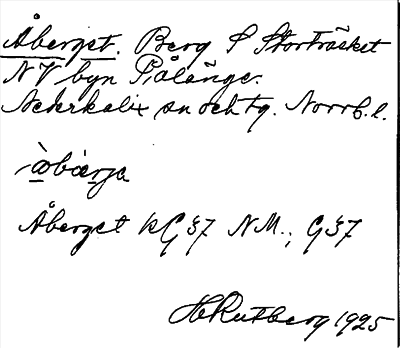 Åberget. Berg S Storträsket
NV byn Pålänge.
Nederkalix sn och tg. Norrb. l.
Åberget kG 37 NM.; G 37
H Rutberg 1925